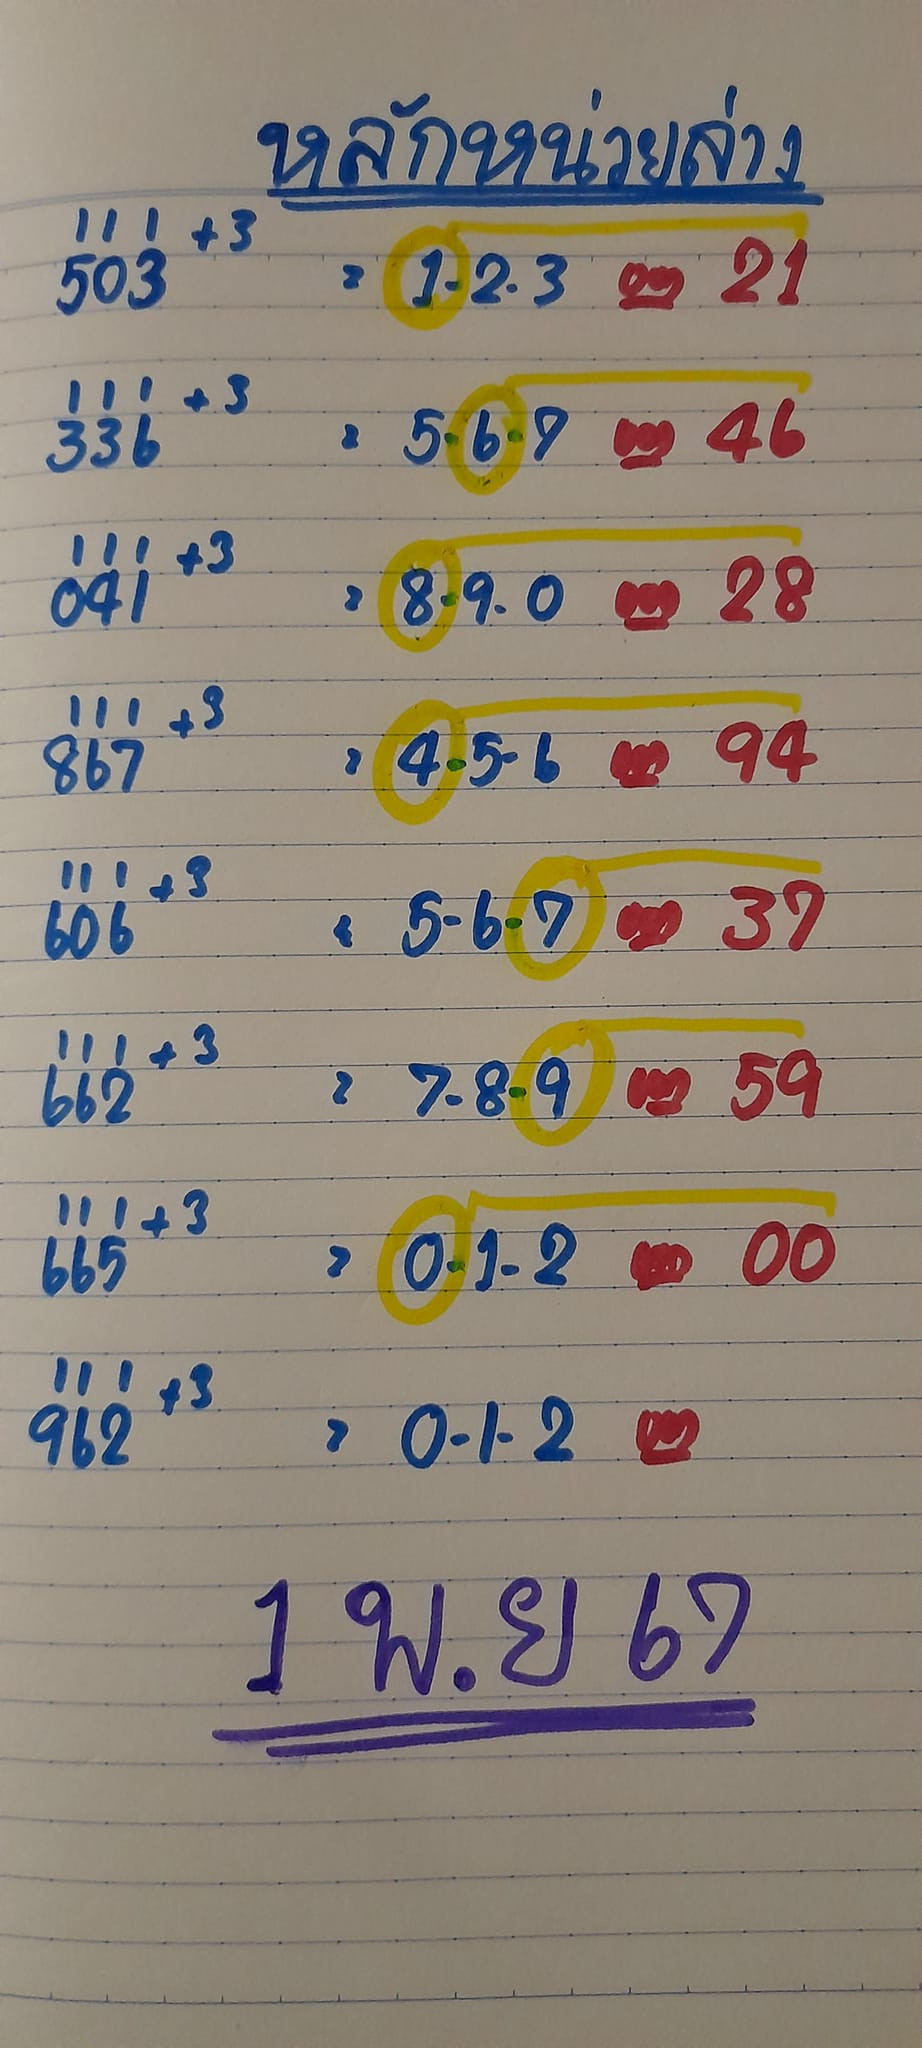 หลักหน่วยล่าง
111 +3
503 = 1-2-3 21
111 +3
336 = 5-6-7 46
111 +3
041 = 8-9-0 28
111 +3
867 = 4-5-6 94
111 +3
606 = 5-6-7 37
111 +3
662 = 7-8-9 59
111 +3
665 = 0-1-2 00
111 +3
962 = 0-1-2
1 พ.ย 67